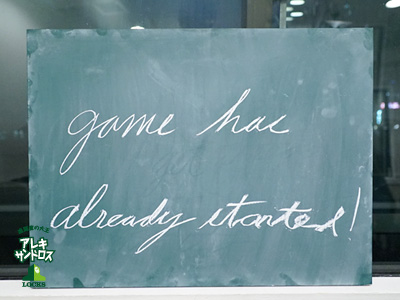 game has
already started!
アレキ
サンドロス
LOCKS